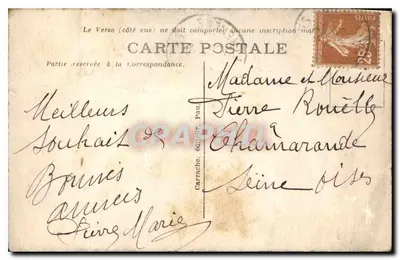 Le Verso (côté vue) ne doit comporter aucune inscription
CARTE POSTALE
Partie réservée à la Correspondance.
Meilleurs
Souhait de
Bonnes
années
Pierre Marie
Carrache, Pau
Madame et Monsieur
Pierre
à
Chamarande
Seine oise
POSTES
25c